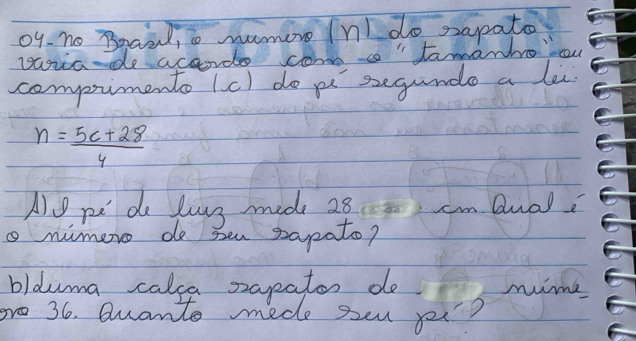 04-no Brasil, o numero (n) do sapato
varia de acordo com o "tamanho" ou
comprimento (c) do pé segundo a lei:
n = 5c+28
4
A) O pé de luiz mede 28 cm. Qual é
o número de seu sapato?
b) duma calça sapatos de núme_
ro 36. Quanto mede seu pé?